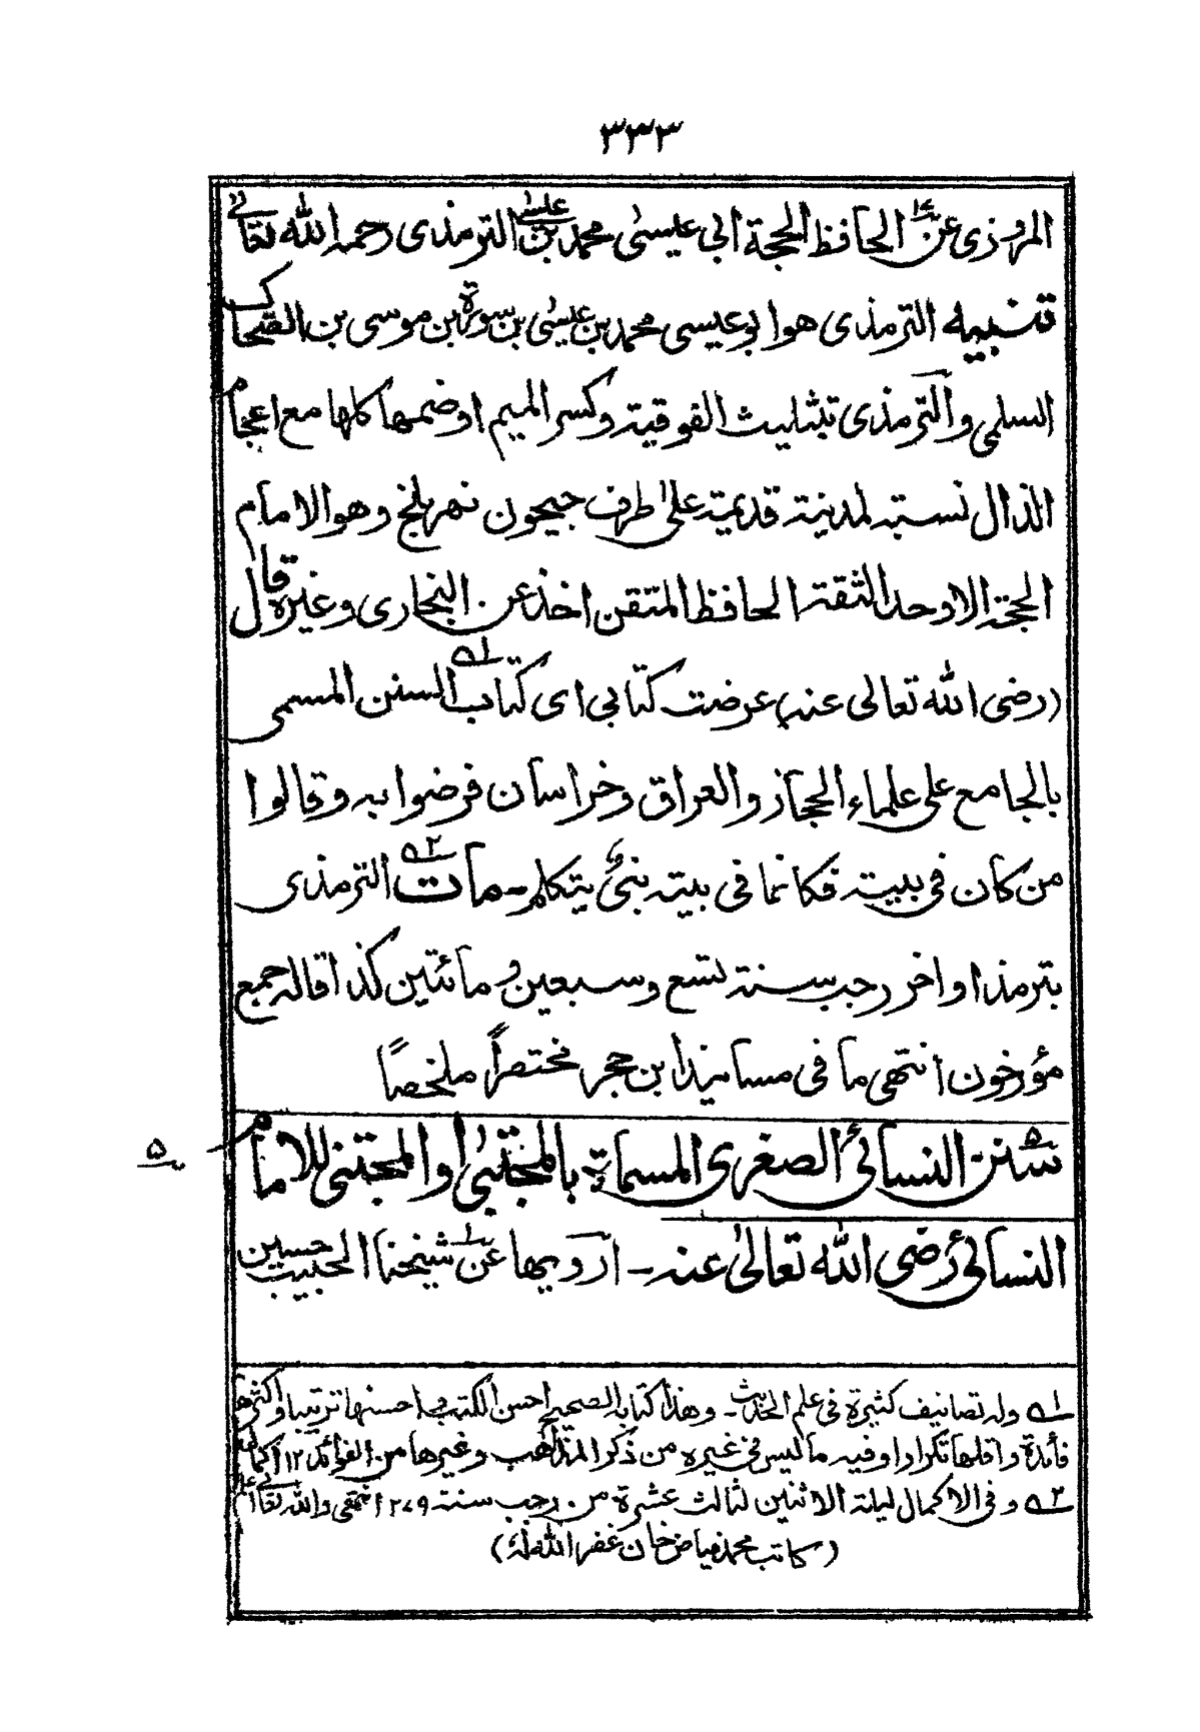 ٣٣٣
المروزى عن الحافظ الحجة ابي عيسىٰ محمد بن عيسىٰ الترمذى رحمه الله تعالى
تنبيه الترمذى هو ابو عيسى محمد بن عيسٰى بن سورة بن موسى بن الضحاك
السلمى والترمذى بتثليث الفوقية وكسر الميم او ضمها كلها مع اعجام
الذال نسبة لمدينة قديمة علىٰ طرف جيحون نهر بلخ وهو الامام
الحجة الاوحد الثقة الحافظ المتقن اخذ عن البخارى وغيره قال
(رضى الله تعالى عنه) عرضت كتابي اى كتاب السنن المسمى
بالجامع على علماء الحجاز والعراق وخراسان فرضوا به وقالوا
من كان فى بيته فكانما فى بيته نبىٌ يتكلم ـ مات الترمذى
بترمذ اواخر رجب سنة تسع وسبعين و مائتين كذا قاله جمع
مؤرخون انتهى ما فى مسانيد ابن حجر مختصراً ملخصاً
سنن النسائى الصغرى المسماة بالمجتبىٰ او المجتنى للامام
٥
النسائى رضى الله تعالىٰ عنه ـ ارويها عن شيخنا الحبيب حسين
١ه وله تصانيف كثيرة فى علم الحديث ـ وهذا كتابه الصحيح احسن الكتب و احسنها ترتيبا واكثرها
فائدة واقلها تكرارا وفيه ما ليس فى غيره من ذكر المذاهب وغيرها من الفوائد ١٢ اكمال
٢ه وفى الاكمال ليلة الاثنين لثالث عشرة من رجب سنة ٢٧٩ انتهى والله تعالىٰ اعلم
(كاتب محمد فياض خان غفر الله لهٗ)